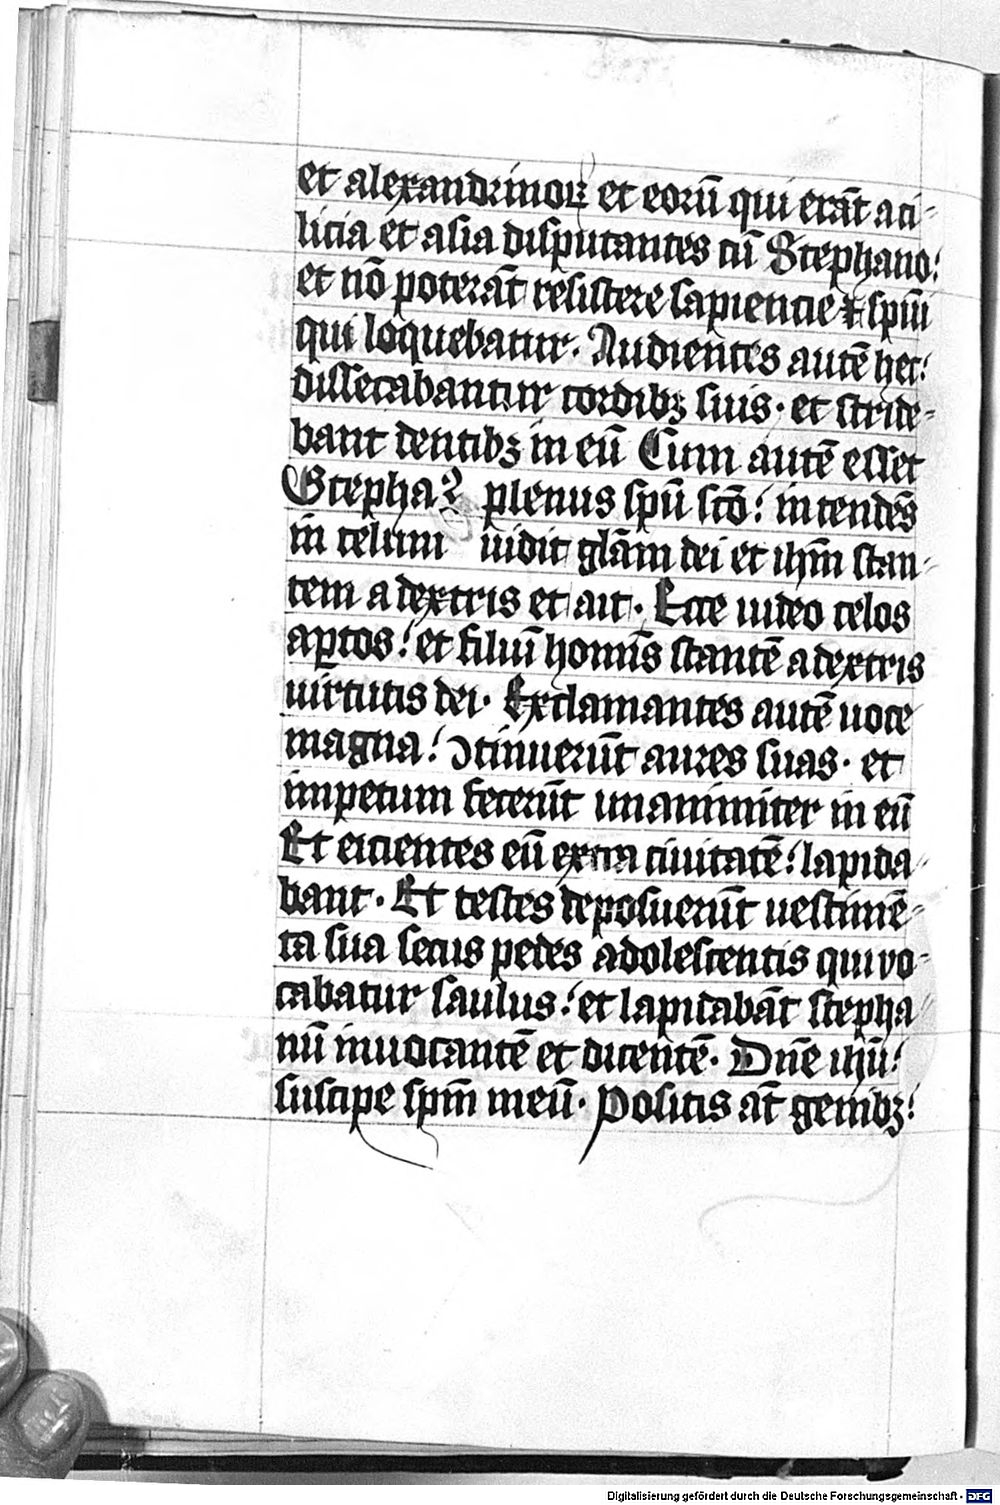 et alexandrinoꝝ et eorū qui erāt a ci-
licia et asia disputantes cū Stephano:
et nō poterāt resistere sapiencie ⁊ spūi
qui loquebatur. Audientes autē hec:
dissecabantur cordibꝫ suis. et stride-
bant dentibꝫ in eū Cum autē esset
Stephaꝰ plenus spū scō: intendēs
in celum uidit glām dei et ihm̄ stan-
tem a dextris et ait. Ecce uideo celos
aꝑtos: et filiū homīs stantē a dextris
uirtutis dei. Exclamantes autē uoce
magna: ꝯtinuerūt aures suas. et
impetum fecerūt unanimiter in eū
Et eicientes eū extra ciuitatē: lapida-
bant. Et testes deposuerūt uestimē-
ta sua secus pedes adolescentis qui vo-
cabatur saulus: et lapidabāt stepha-
nū inuocantē et dicentē. Dn̄e ihū:
suscipe spm̄ meū. Positis āt genibꝫ:
Digitalisierung gefördert durch die Deutsche Forschungsgemeinschaft - DFG